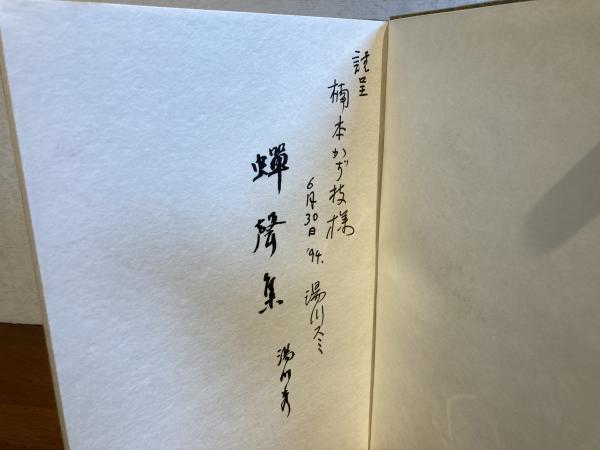 謹呈
楠本かず枝様
6月30日 '94.
湯川スミ
蟬聲集
湯川秀